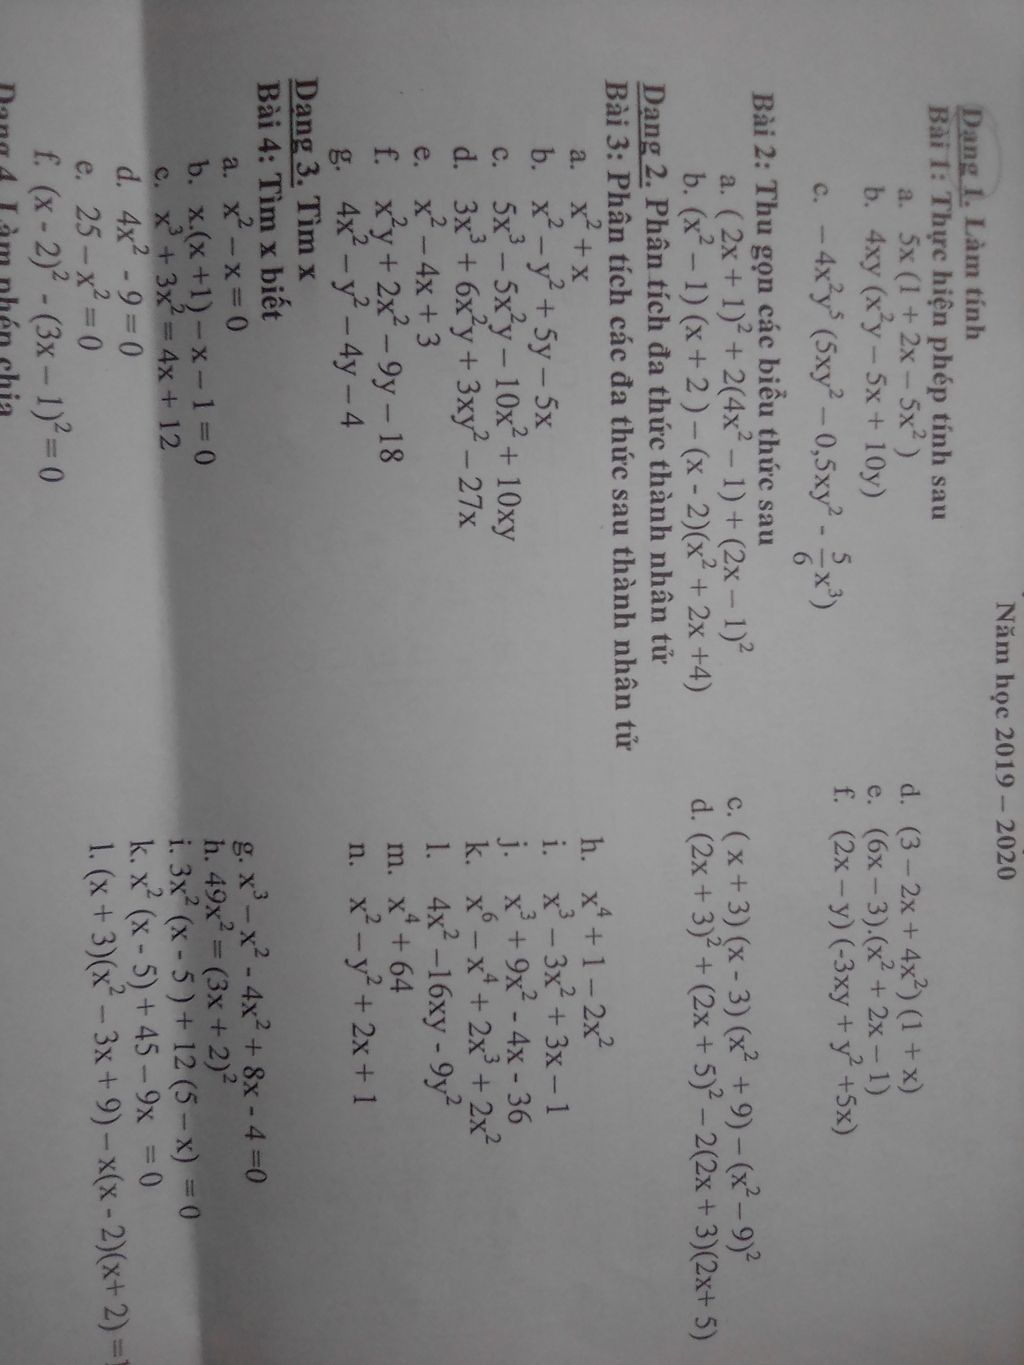 Năm học 2019 – 2020
Dạng 1. Làm tính
Bài 1: Thực hiện phép tính sau
a. 5x (1 + 2x – 5x²)
b. 4xy (x²y – 5x + 10y)
c. – 4x²y⁵ (5xy² – 0,5xy² - 5/6 x³)
d. (3 – 2x + 4x²) (1 + x)
e. (6x – 3).(x² + 2x – 1)
f. (2x – y) (-3xy + y² +5x)
Bài 2: Thu gọn các biểu thức sau
a. ( 2x + 1)² + 2(4x² – 1) + (2x – 1)²
b. (x² – 1) (x + 2 ) – (x - 2)(x² + 2x +4)
c. ( x + 3) (x - 3) (x² + 9) – (x² – 9)²
d. (2x + 3)² + (2x + 5)² – 2(2x + 3)(2x+ 5)
Dạng 2. Phân tích đa thức thành nhân tử
Bài 3: Phân tích các đa thức sau thành nhân tử
a. x² + x
b. x² – y² + 5y – 5x
c. 5x³ – 5x²y – 10x² + 10xy
d. 3x³ + 6x²y + 3xy² – 27x
e. x² – 4x + 3
f. x²y + 2x² – 9y – 18
g. 4x² – y² – 4y – 4
h. x⁴ + 1 – 2x²
i. x³ – 3x² + 3x – 1
j. x³ + 9x² - 4x - 36
k. x⁶ – x⁴ + 2x³ + 2x²
l. 4x² –16xy - 9y²
m. x⁴ + 64
n. x² – y² + 2x + 1
Dạng 3. Tìm x
Bài 4: Tìm x biết
a. x² – x = 0
b. x.(x +1) – x – 1 = 0
c. x³ + 3x² = 4x + 12
d. 4x² - 9 = 0
e. 25 – x² = 0
f. (x - 2)² - (3x – 1)² = 0
g. x³ – x² - 4x² + 8x - 4 =0
h. 49x² = (3x + 2)²
i. 3x² (x - 5 ) + 12 (5 – x) = 0
k. x² (x - 5) + 45 – 9x = 0
l. (x + 3)(x² – 3x + 9) – x(x - 2)(x+ 2) =
Dạng 4. Làm phép chia